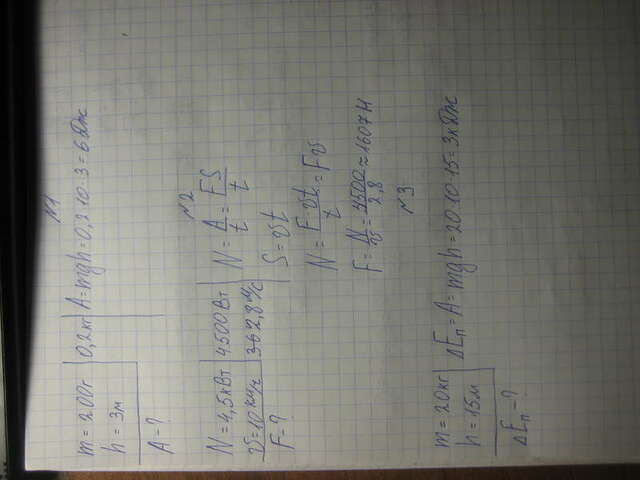 №1
m = 200г | 0,2 кг | A = mgh = 0,2·10·3 = 6 Дж
h = 3м
A = ?
№2
N = 4,5 кВт | 4500 Вт | N = A/t = FS/t
v = 10 км/ч | 2,8 м/с
F = ?
S = vt
N = F·vt/t = Fv
F = N/v = 4500/2,8 ≈ 1607 Н
№3
m = 20 кг | ΔEп = A = mgh = 20·10·15 = 3 кДж
h = 15 м
ΔEп = ?